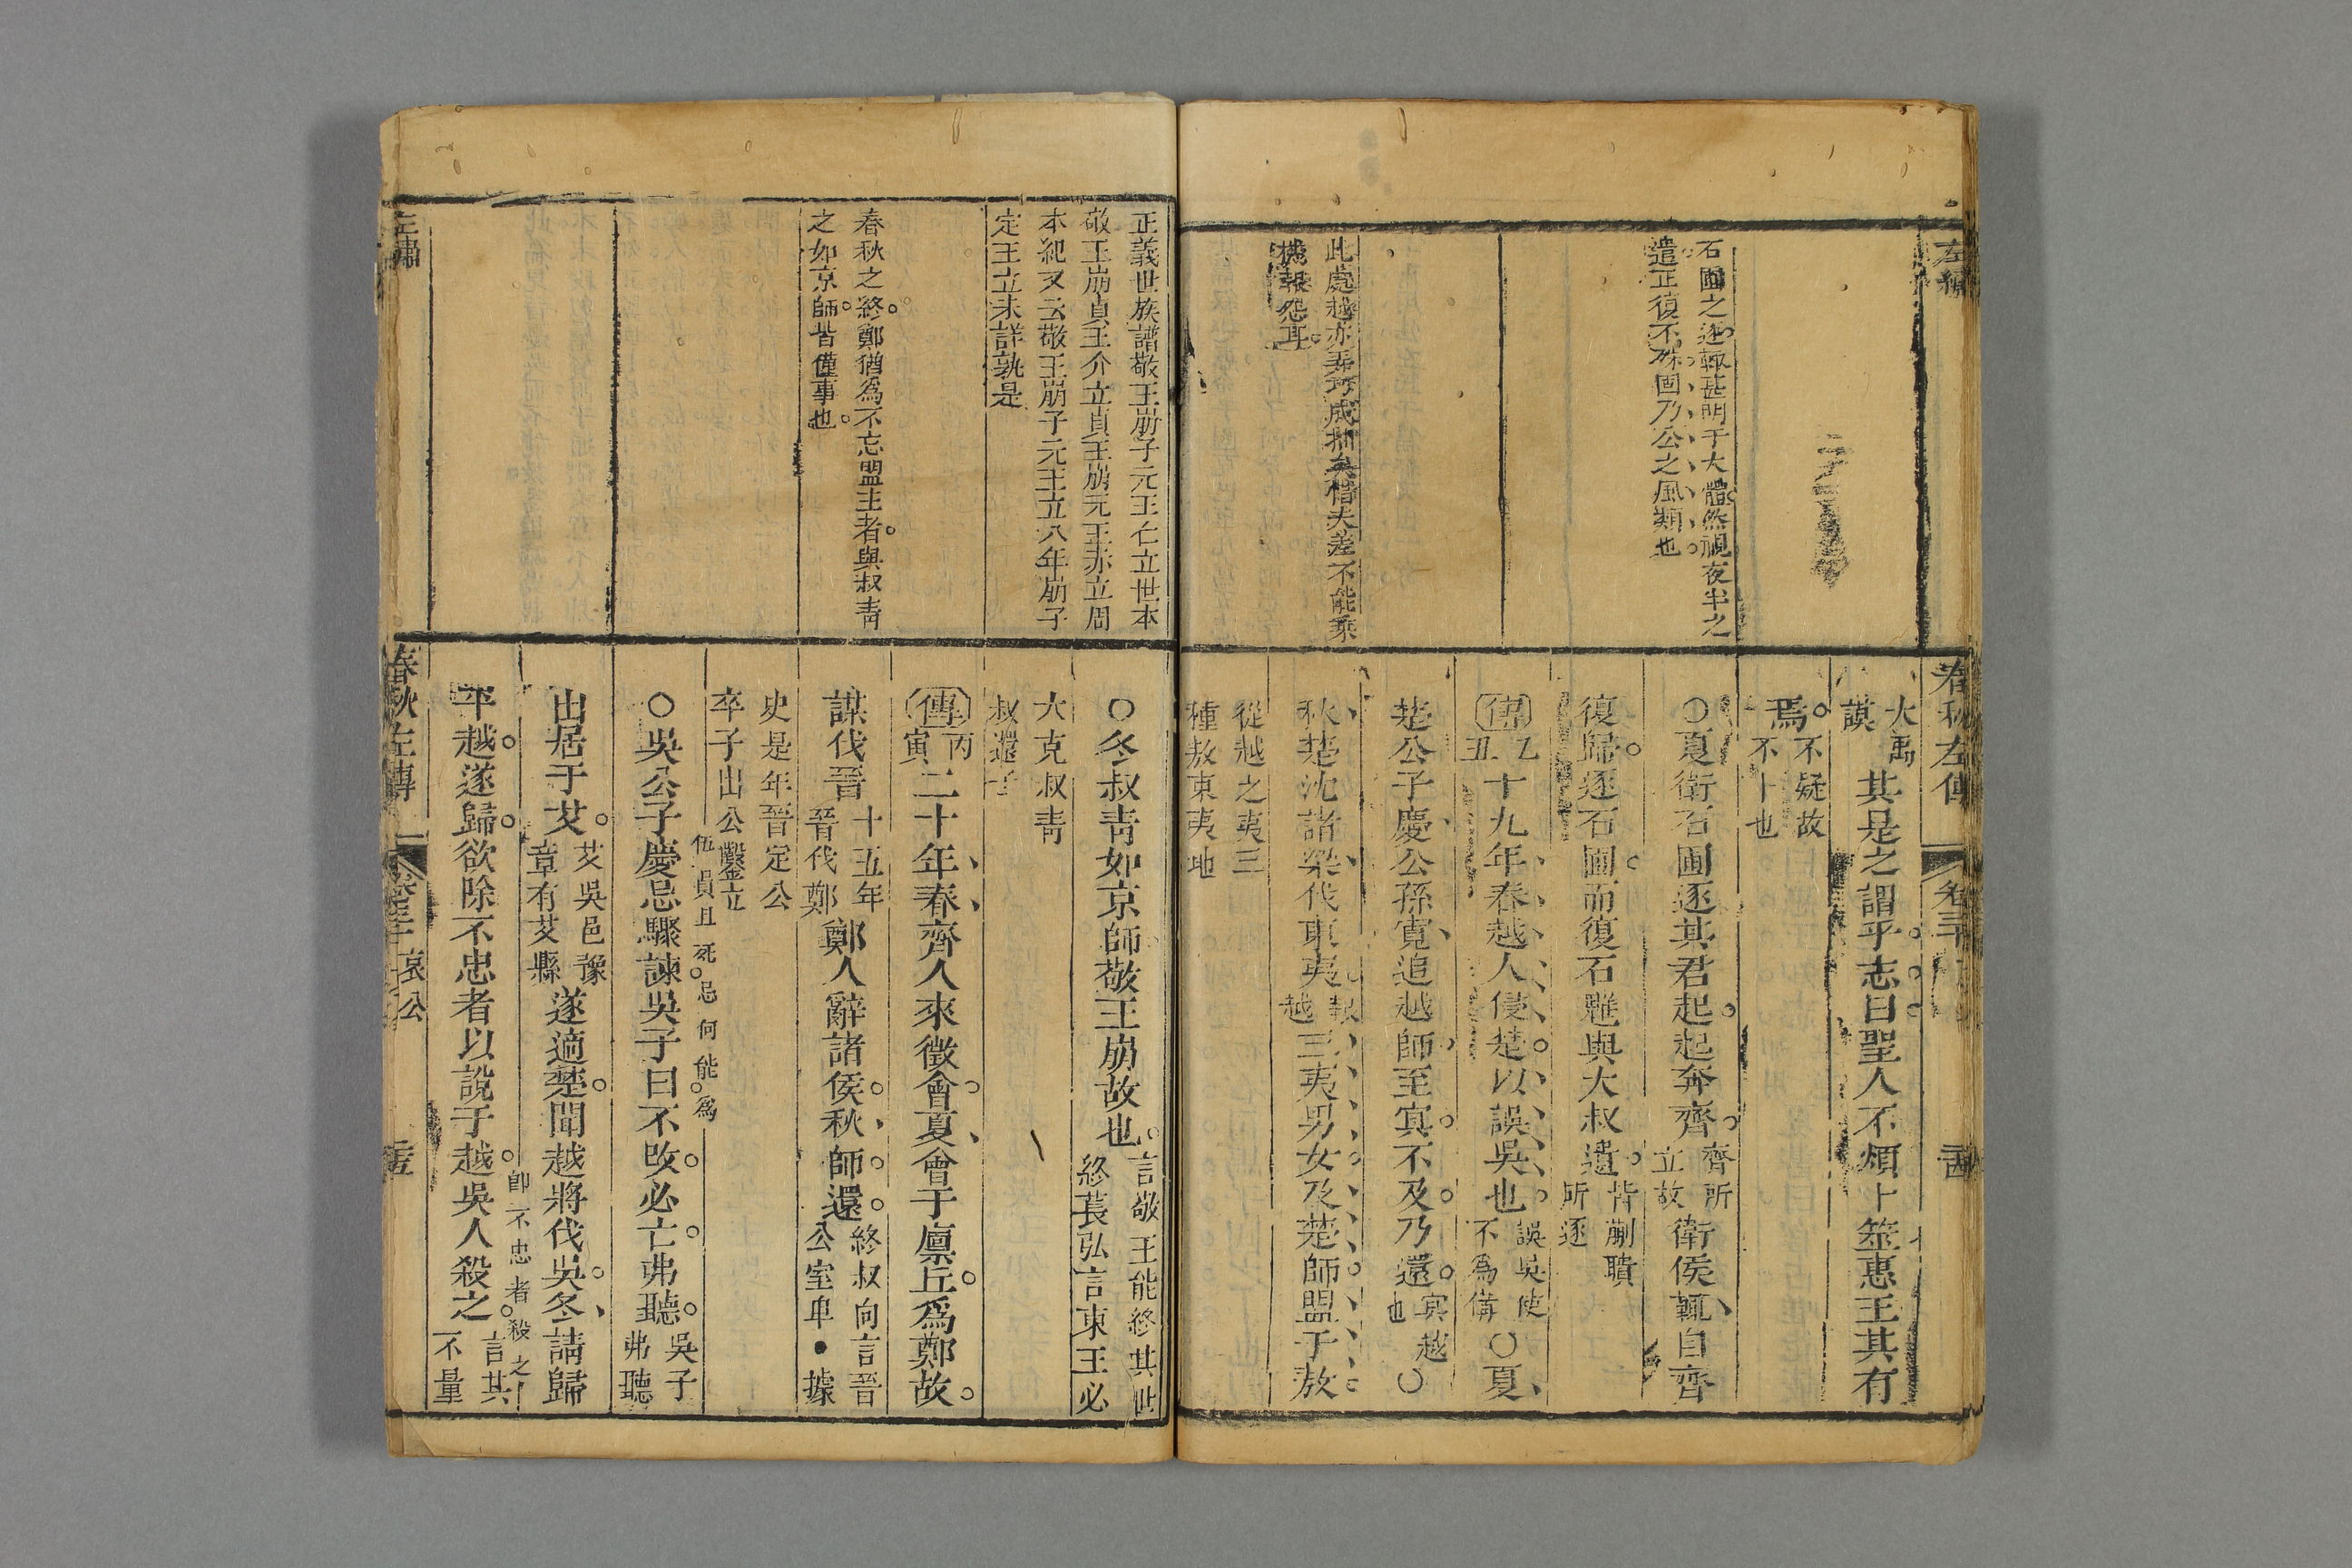 左繡
春秋左傳
卷三十
石圃之逐輒甚明于大體然視夜半之
遣正復不殊固乃公之風類也
此處越亦弄巧成拙矣借夫差不能乘
機報怨耳
大禹
謨
其是之謂乎志曰聖人不煩卜筮惠王其有
焉
不疑故
不卜也
○夏衛石圃逐其君起起奔齊
齊所
立故
衛侯輒自齊
復歸逐石圃而復石魋與大叔遺
皆蒯聵
所逐
傳
乙
丑
十九年春越人侵楚以誤吳也
誤吳使
不為備
○夏
楚公子慶公孫寬追越師至冥不及乃還
冥越
也
○
秋楚沈諸梁伐東夷
報
越
三夷男女及楚師盟于敖
從越之夷三
種敖東夷地
正義世族譜敬王崩子元王仁立世本
敬王崩貞王介立貞王崩元王赤立周
本紀又云敬王崩子元王立八年崩子
定王立未詳孰是
春秋之終鄭猶為不忘盟主者與叔青
之如京師皆僅事也
○冬叔青如京師敬王崩故也
言敬王能終其世
終萇弘言東王必
大克叔青
叔還子
傳
丙
寅
二十年春齊人來徵會夏會于廩丘爲鄭故
謀伐晉
十五年
晉伐鄭
鄭人辭諸侯秋師還
終叔向言晉
公室卑•據
史是年晉定公
卒子出公鑿立
伍員且死忌何能為
○吳公子慶忌驟諫吳子曰不改必亡弗聽
吳子
弗聽
出居于艾
艾吳邑豫
章有艾縣
遂適楚聞越將伐吳冬請歸
即不忠者殺之
平越遂歸欲除不忠者以說于越吳人殺之
言其
不量
左繡
春秋左傳
哀公